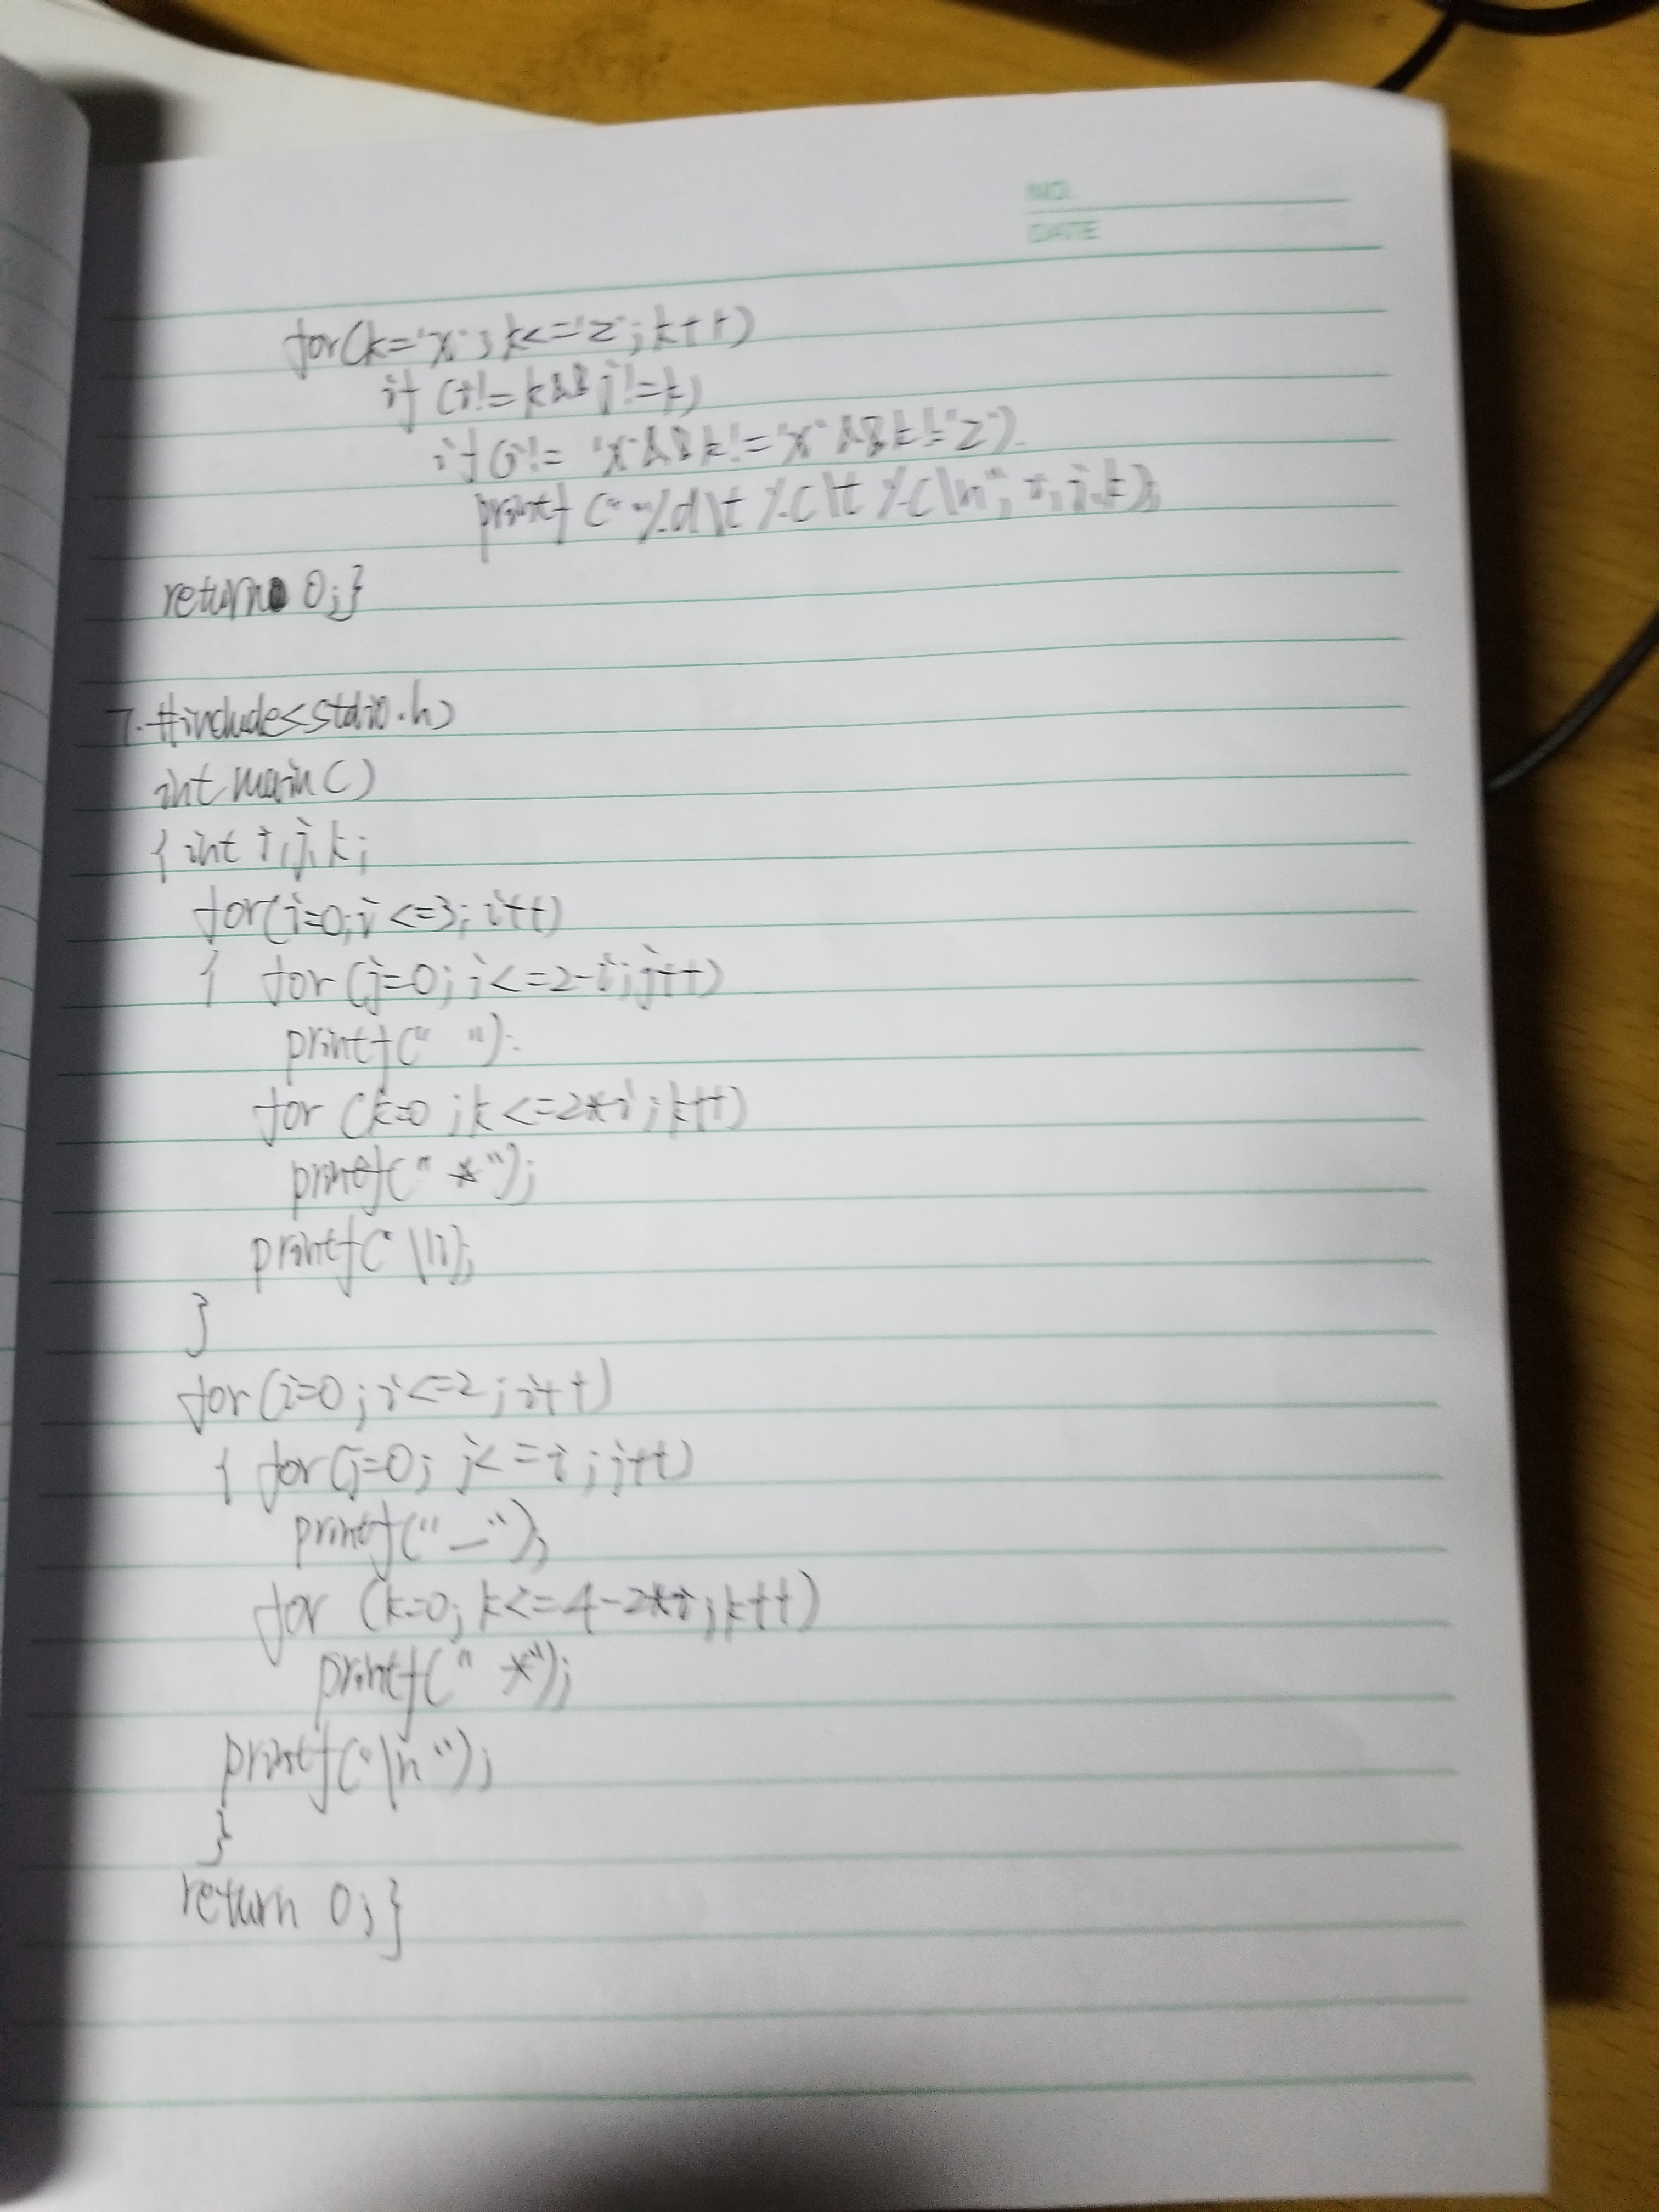 NO.
DATE
for(k='x';k<='z';k++)
if (i!=k&&j!=k)
if(i!='x'&&k!='x'&&k!='z')
printf("%d\t%c\t%c\n",i,j,k);
return 0;}
7.#include<stdio.h>
int main()
{int i,j,k;
for(i=0;i<=3;i++)
{ for(j=0;i<=2-i;j++)
printf(" ");
for (k=0;k<=2*i;k++)
printf("*");
printf("\n);
}
for(i=0;i<=2;i++)
{ for(j=0; j<=i;j++)
printf("_");
for (k=0;k<=4-2*i;k++)
printf("*");
printf("\n");
}
return 0;}